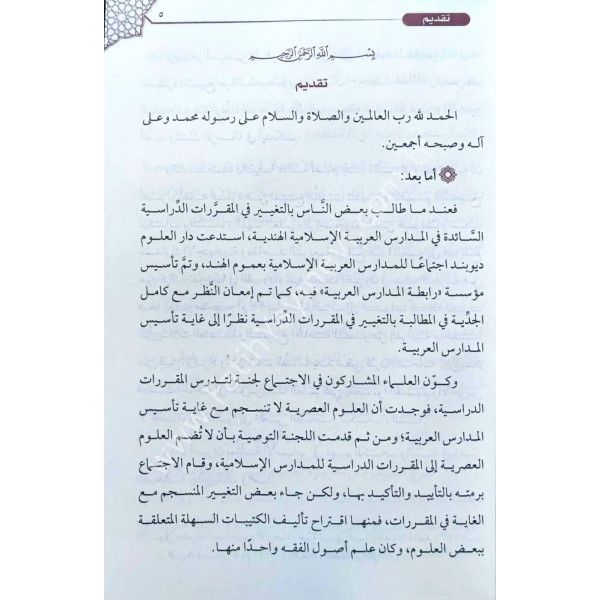 تقديم
٥
بِسْمِ اللَّهِ الرَّحْمَنِ الرَّحِيمِ
تقديم
الحمد لله رب العالمين والصلاة والسلام على رسوله محمد وعلى
آلـه وصبحـه أجمعين.
أما بعد:
فعنـد مـا طالـب بعـض النَّـاس بالتغيير في المقـررات الدِّراسـية
السَّـائدة في المدارس العربيـة الإسـلامية الهندية، اسـتدعت دار العلوم
ديوبنـد اجتماعًـا للمدارس العربيـة الإسـلامي بعمـوم الهند، وتمَّ تأسيس
مؤسسـة «رابطـة المدارس العربيـة» فيـه، كما تـم إمعـان النَّظـر مـع كامـل
الجدِّية في المطالبـة بالتغيير في المقررات الدِّراسـية نظرًا إلى غاية تأسـيس
المدارس العربيـة.
وكـوّن العلمـاء المشـاركون في الاجتماع لجنـة لتـدرس المقررات
الدراسـية، فوجـدت أن العلوم العصرية لا تنسـجم مـع غاية تأسـيس
المدارس العربيـة؛ ومن ثـم قدمت اللجنة التوصية بـأن لا تُضـم العلوم
العصريـة إلى المقررات الدراسـية للمدارس الإسـلامية، وقـام الاجتماع
برمتـه بالتأييـد والتأكيـد بهـا، ولكـن جـاء بعـض التغيير المنسـجم مـع
الغاية في المقـررات، فمنهـا اقتراح تأليف الكتيبات السـهلة المتعلقـة
ببعـض العلـوم، وكان علـم أصـول الفقـه واحـدًا منهـا.